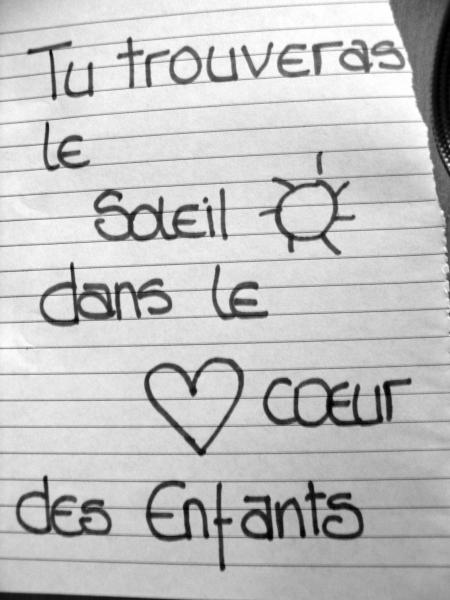 Tu trouveras
le
Soleil
dans le
coeur
des Enfants